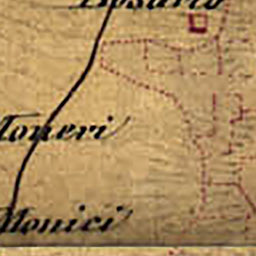 Rosario
Toneri
Monici